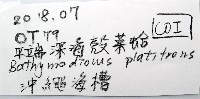 2018.07
OT79
COI
平端深海殼菜蛤
Bathymodiolus platifrons
沖繩海槽